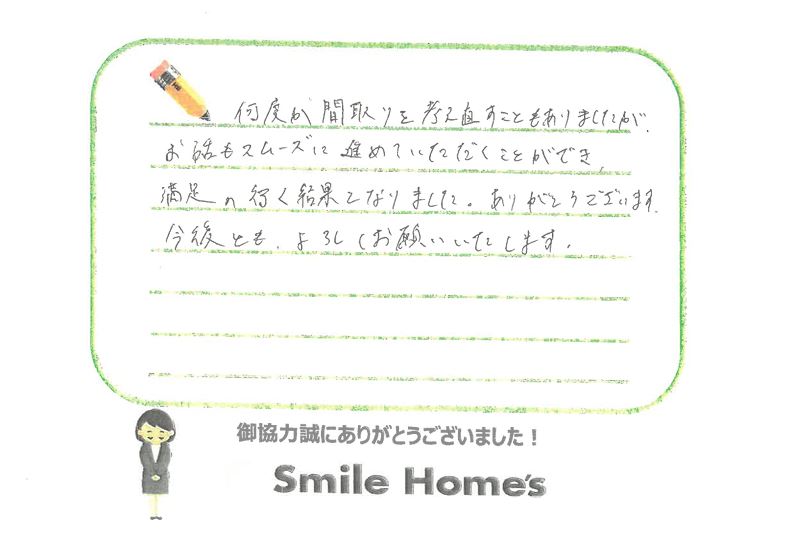 何度か間取りを考え直すこともありましたが、
お話もスムーズに進めていただくことができ、
満足の行く結果となりました。ありがとうございます。
今後とも、よろしくお願いいたします。
御協力誠にありがとうございました！
Smile Home's